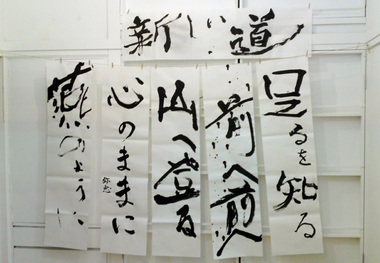 新しい道
足るを知る
前へ前へ
山へ登る
心のままに
燕のように